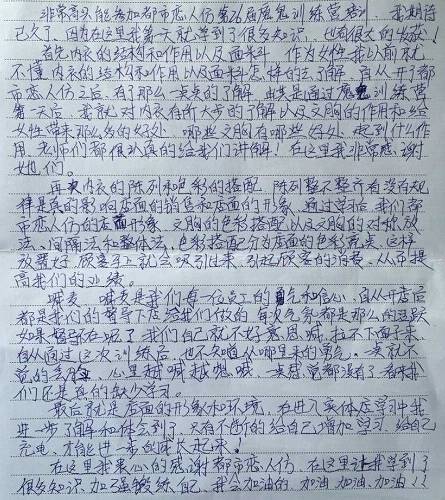 非常高兴能参加都市恋人仿第26届魔鬼训练营培训，我期待
已久了，因为在这里我第一天就学到了很多知识，也有很大的收获！
首先内衣的结构和作用以及面料，作为女性我以前就
不懂内衣的结构和作用以及面料怎样的去了解，自从开了都
市恋人仿之后，有了那么一点点的了解，尤其是通过魔鬼训练营
第一天后，我就对内衣有所大步的了解以及文胸的作用和给
女性带来那么多的好处，哪些文胸有哪些好处，起到什么作
用，老师们都很认真的给我们讲解！在这里我非常感谢
她们。
再次内衣的陈列和色彩的搭配，陈列整不整齐有没有规
律是真的影响店面的销售和店面的形象，通过学习后我们都
市恋人仿的店面形象，文胸的色彩搭配以及文胸的对称放
法、间隔法和整体法，色彩搭配分为店面的色彩亮点，这样
放置好，顾客马上就会吸引过来，引起顾客的消费，从而提
高我们的业绩。
喊麦，喊麦是我们每一位员工的勇气和信心，自从开店后
都是我们的督导下店给我们做的，每次气氛都是那么的活跃
如果督导在喊了，我们自己就不好意思喊，拉不下面子来，
自从通过这次训练后，也不知道从哪里来的勇气，一点就不
觉的，心里越喊越想喊，一点感觉都没有了，看来我
们还是真的缺少学习。
最后就是店面的形象和环境，在进入实体店学习中我
进一步了解和体会到了，只有不断的给自己增加学习，给自己
充电，才能进一步的成长起来！
在这里我衷心的感谢都市恋人仿，在这里让我学到了
很多知识，加强锻练自己，我会加油的，加油，加油，加油！！